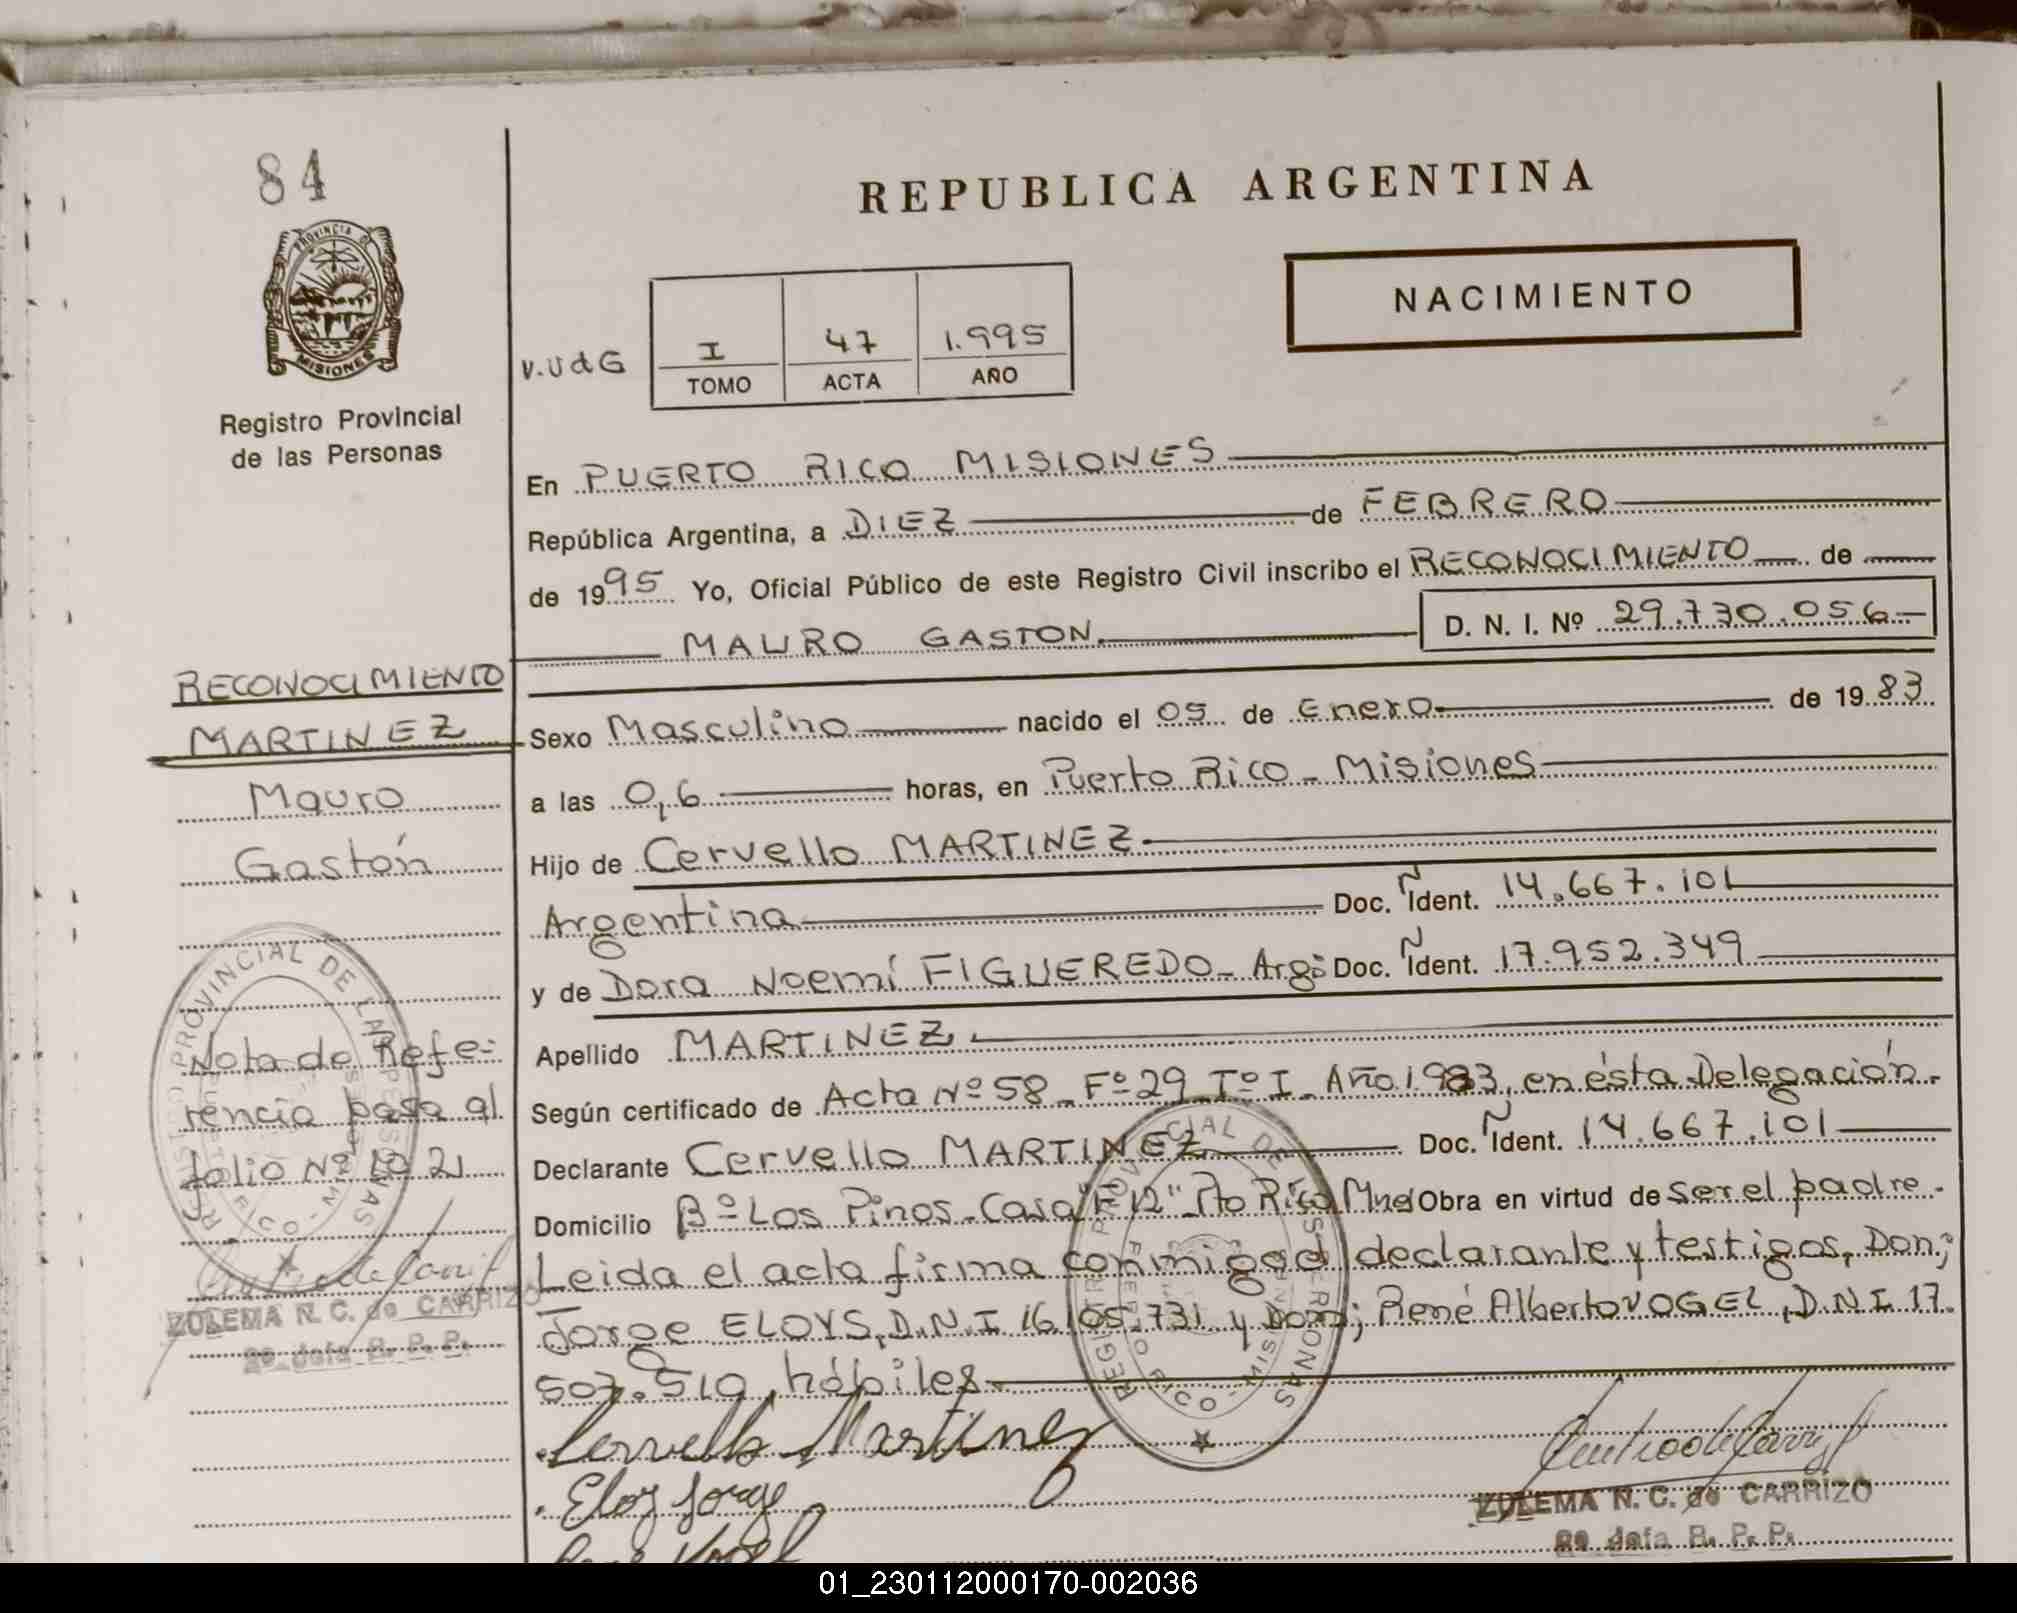 84
PROVINCIA D
MISIONES
Registro Provincial
de las Personas
REPUBLICA ARGENTINA
NACIMIENTO
V.UdG
I 47 1.995
TOMO ACTA AÑO
En PUERTO RICO MISIONES
República Argentina, a DIEZ de FEBRERO
de 1995 Yo, Oficial Público de este Registro Civil inscribo el RECONOCIMIENTO de
MAURO GASTON. D. N. I. Nº 29.730.056
RECONOCIMIENTO
MARTINEZ
Mauro
Gastón
Nota de Refe-
rencia pasa al
folio Nº 102
ZULEMA N. C. de CARRIZO
2º Jefa R. P. P.
Sexo Masculino nacido el 05 de Enero de 1983
a las 0,6 horas, en Puerto Rico - Misiones
Hijo de Cervello MARTINEZ
Argentina Doc. Ident. 14.667.101
y de Dora Noemí FIGUEREDO - Arg: Doc. Ident. 17.952.349
Apellido MARTINEZ
Según certificado de Acta Nº 58 - Fº 29 Tº I - Año 1983, en ésta Delegación.
Declarante Cervello MARTINEZ Doc. Ident. 14.667.101
Domicilio Bº Los Pinos - Casa "F 12" - Pto Rico Mnes Obra en virtud de ser el padre.
Leida el acta firma conmigo el declarante y testigos, Don;
Jorge ELOYS, D.N.I 16.105.731 y Don; René Alberto VOGEL, D.N.I. 17.
507.510, hábiles
Cervello Martinez
Eloy Jorge
ZULEMA N. C. de CARRIZO
2º Jefa R. P. P.
01_230112000170-002036